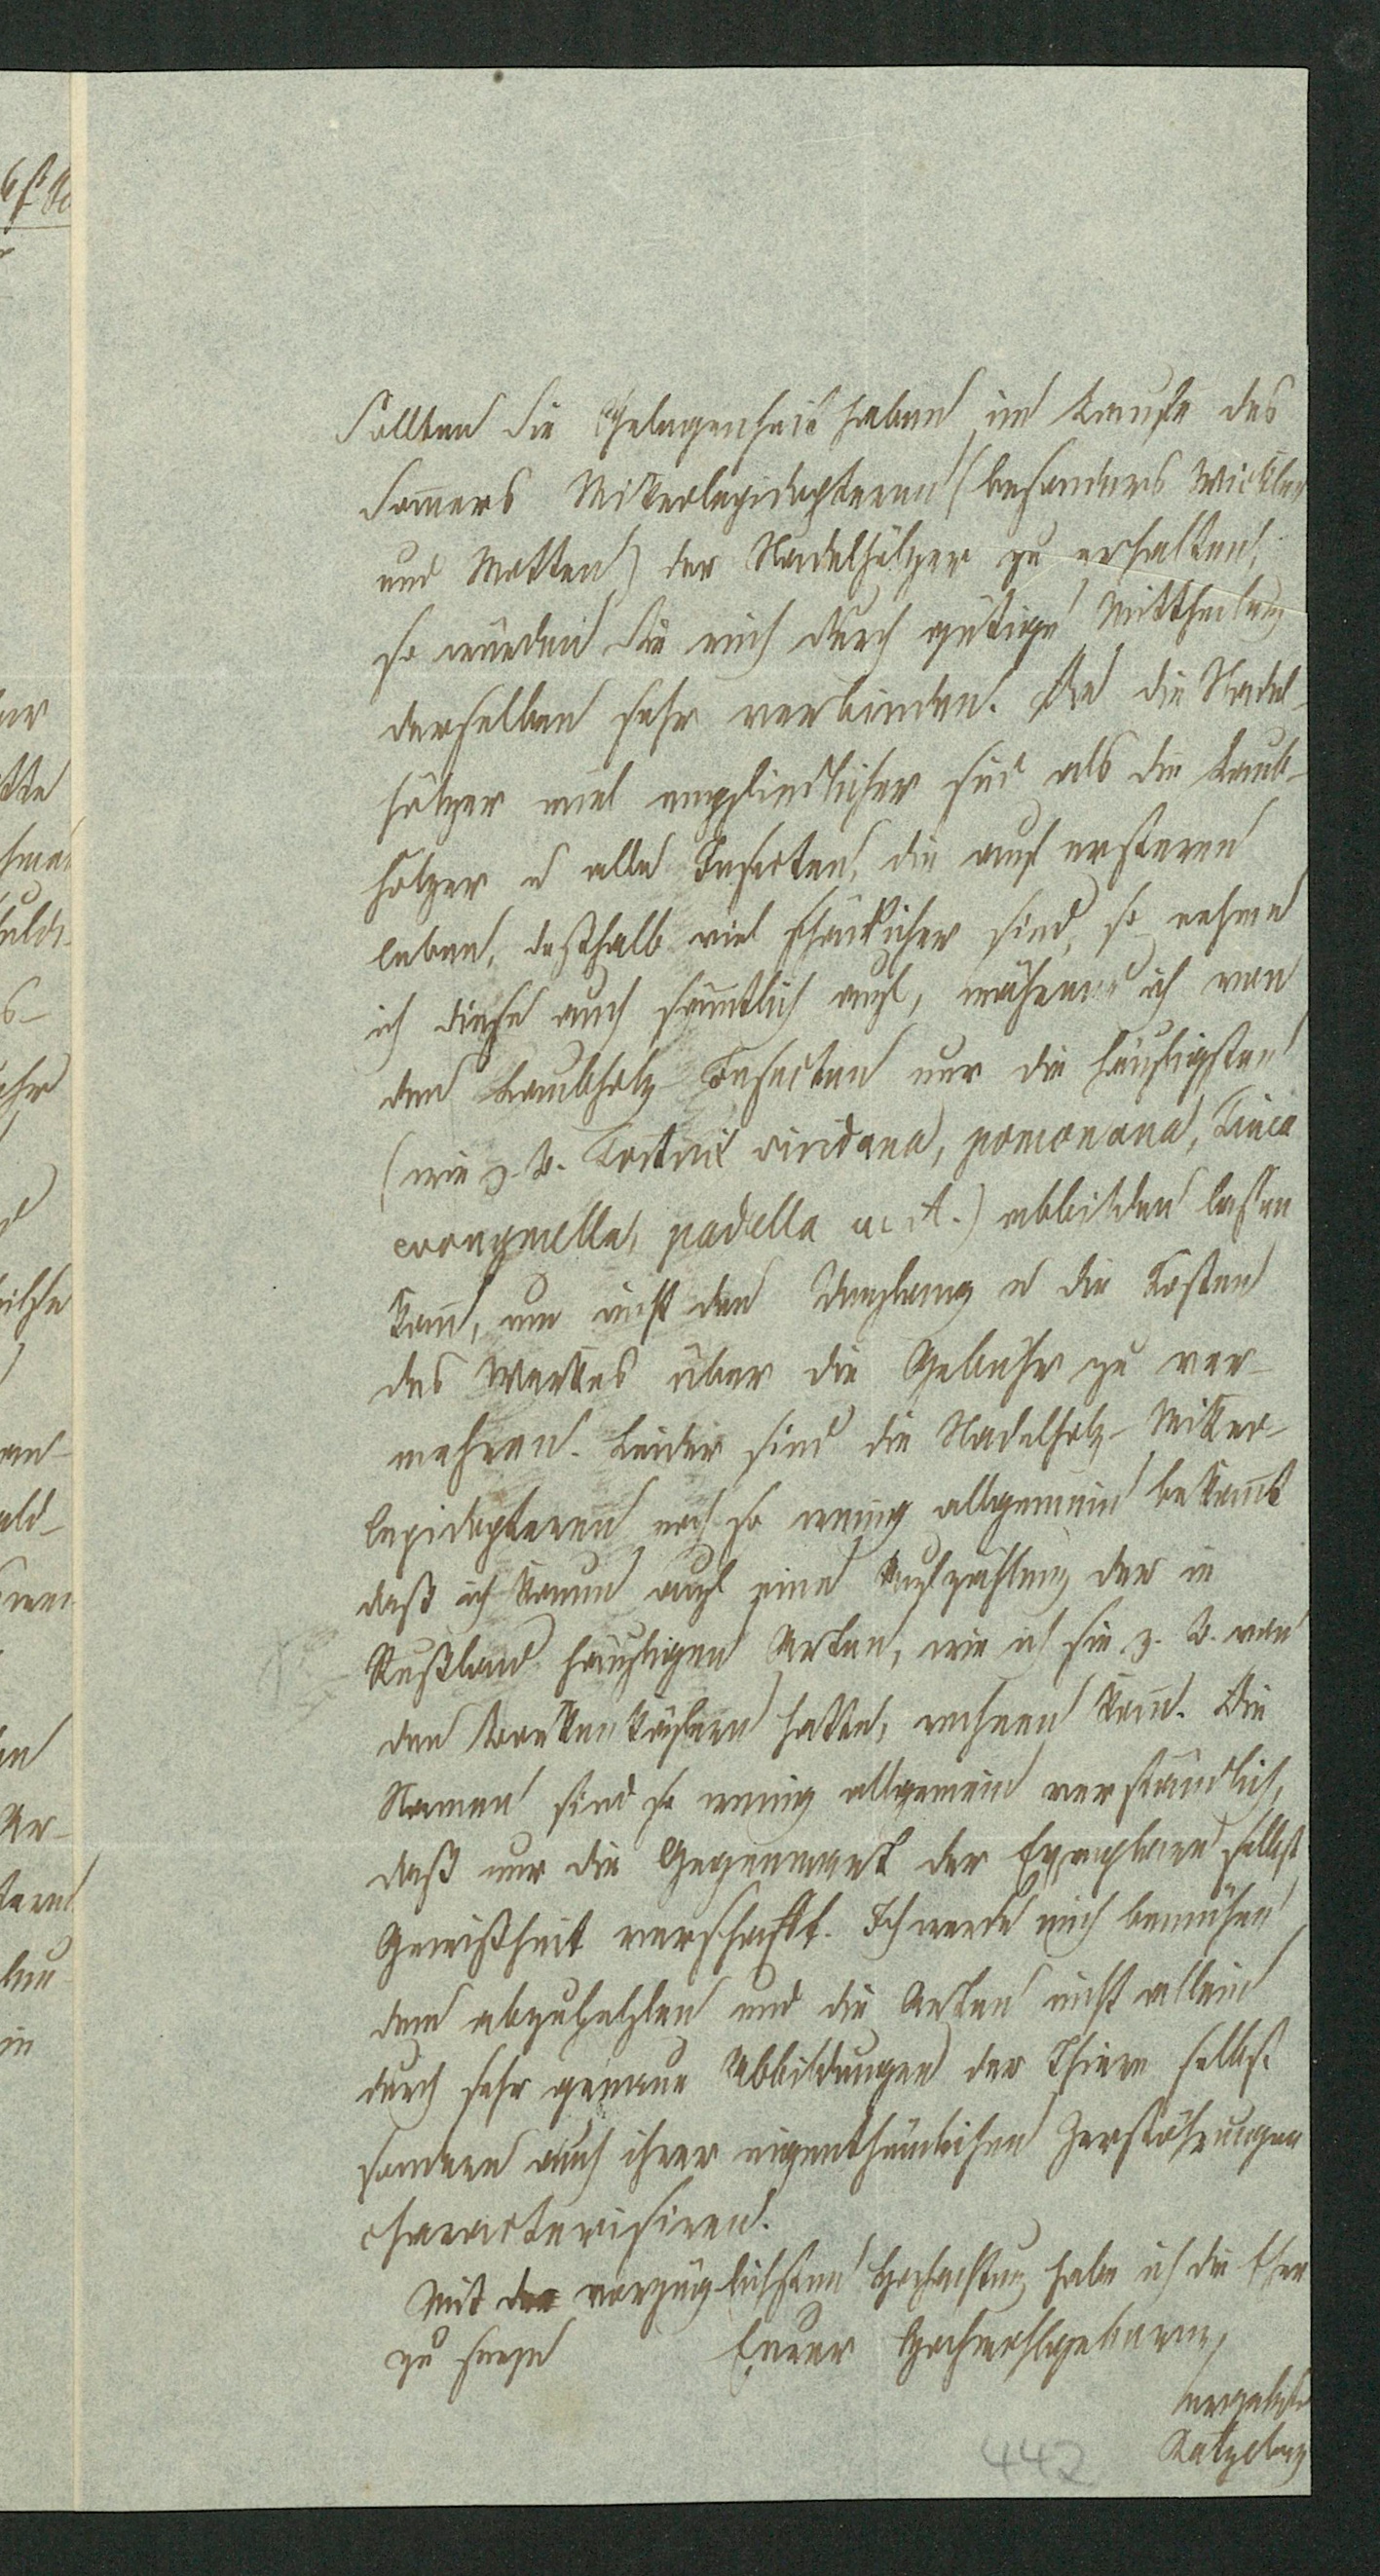 Sollten Sie Gelegenheit haben, im Laufe des
Somers Mikrolepidopteren (besonders Wickler
und Motten) der Nadelhölzer zu erhalten,
so würden Sie mich durch gütige Mittheilung
derselben sehr verbinden. Da die Nadel-
hölzer viel empfindlicher sind als die Laub-
hölzer u alle Insecten, die auf ersteren
leben, deßhalb viel schädlicher sind, so nehme
ich diese auch sämtlich auf, während ich von
den Laubholz Insecten nur die häufigsten
(wie z. B. Tortrix viridana, pomonana, Tinea
evonymella, padella u. A.) abbilden lassen
kann, um nicht den Umfang u die Kosten
des Werkes über die Gebühr zu ver-
mehren. Leider sind die Nadelholz-Mikro-
lepidopteren noch so wenig allgemein bekannt
daß ich kaum auf eine Aufzählung der in
Rußland häufigen Arten, wie ich sie z. B. von
den Borkenkäfern hatte, rechnen kann. Die
Namen sind so wenig allgemein verständlich,
daß nur die Gegenwart der Exemplare selbst
Gewißheit verschafft. Ich werde mich bemühen
dem abzuhelfen und die Arten nicht allein
durch sehr genaue Abbildungen der Thiere selbst
sondern auch ihrer eigenthümlichen Zerstöhrungen
characterisiren.
Mit der vorzüglichsten Hochachtung habe ich die Ehre
zu seyn Euer Hochwohlgeboren
ergebenster
Ratzeburg
442